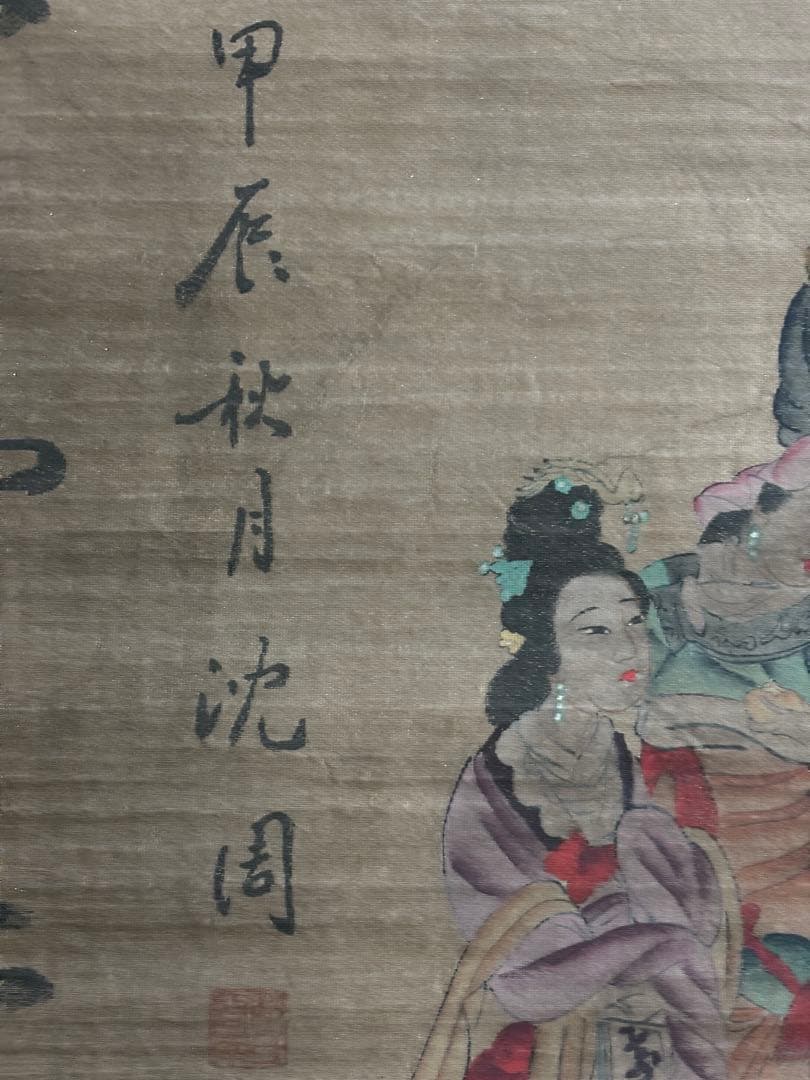 甲辰秋月沈周